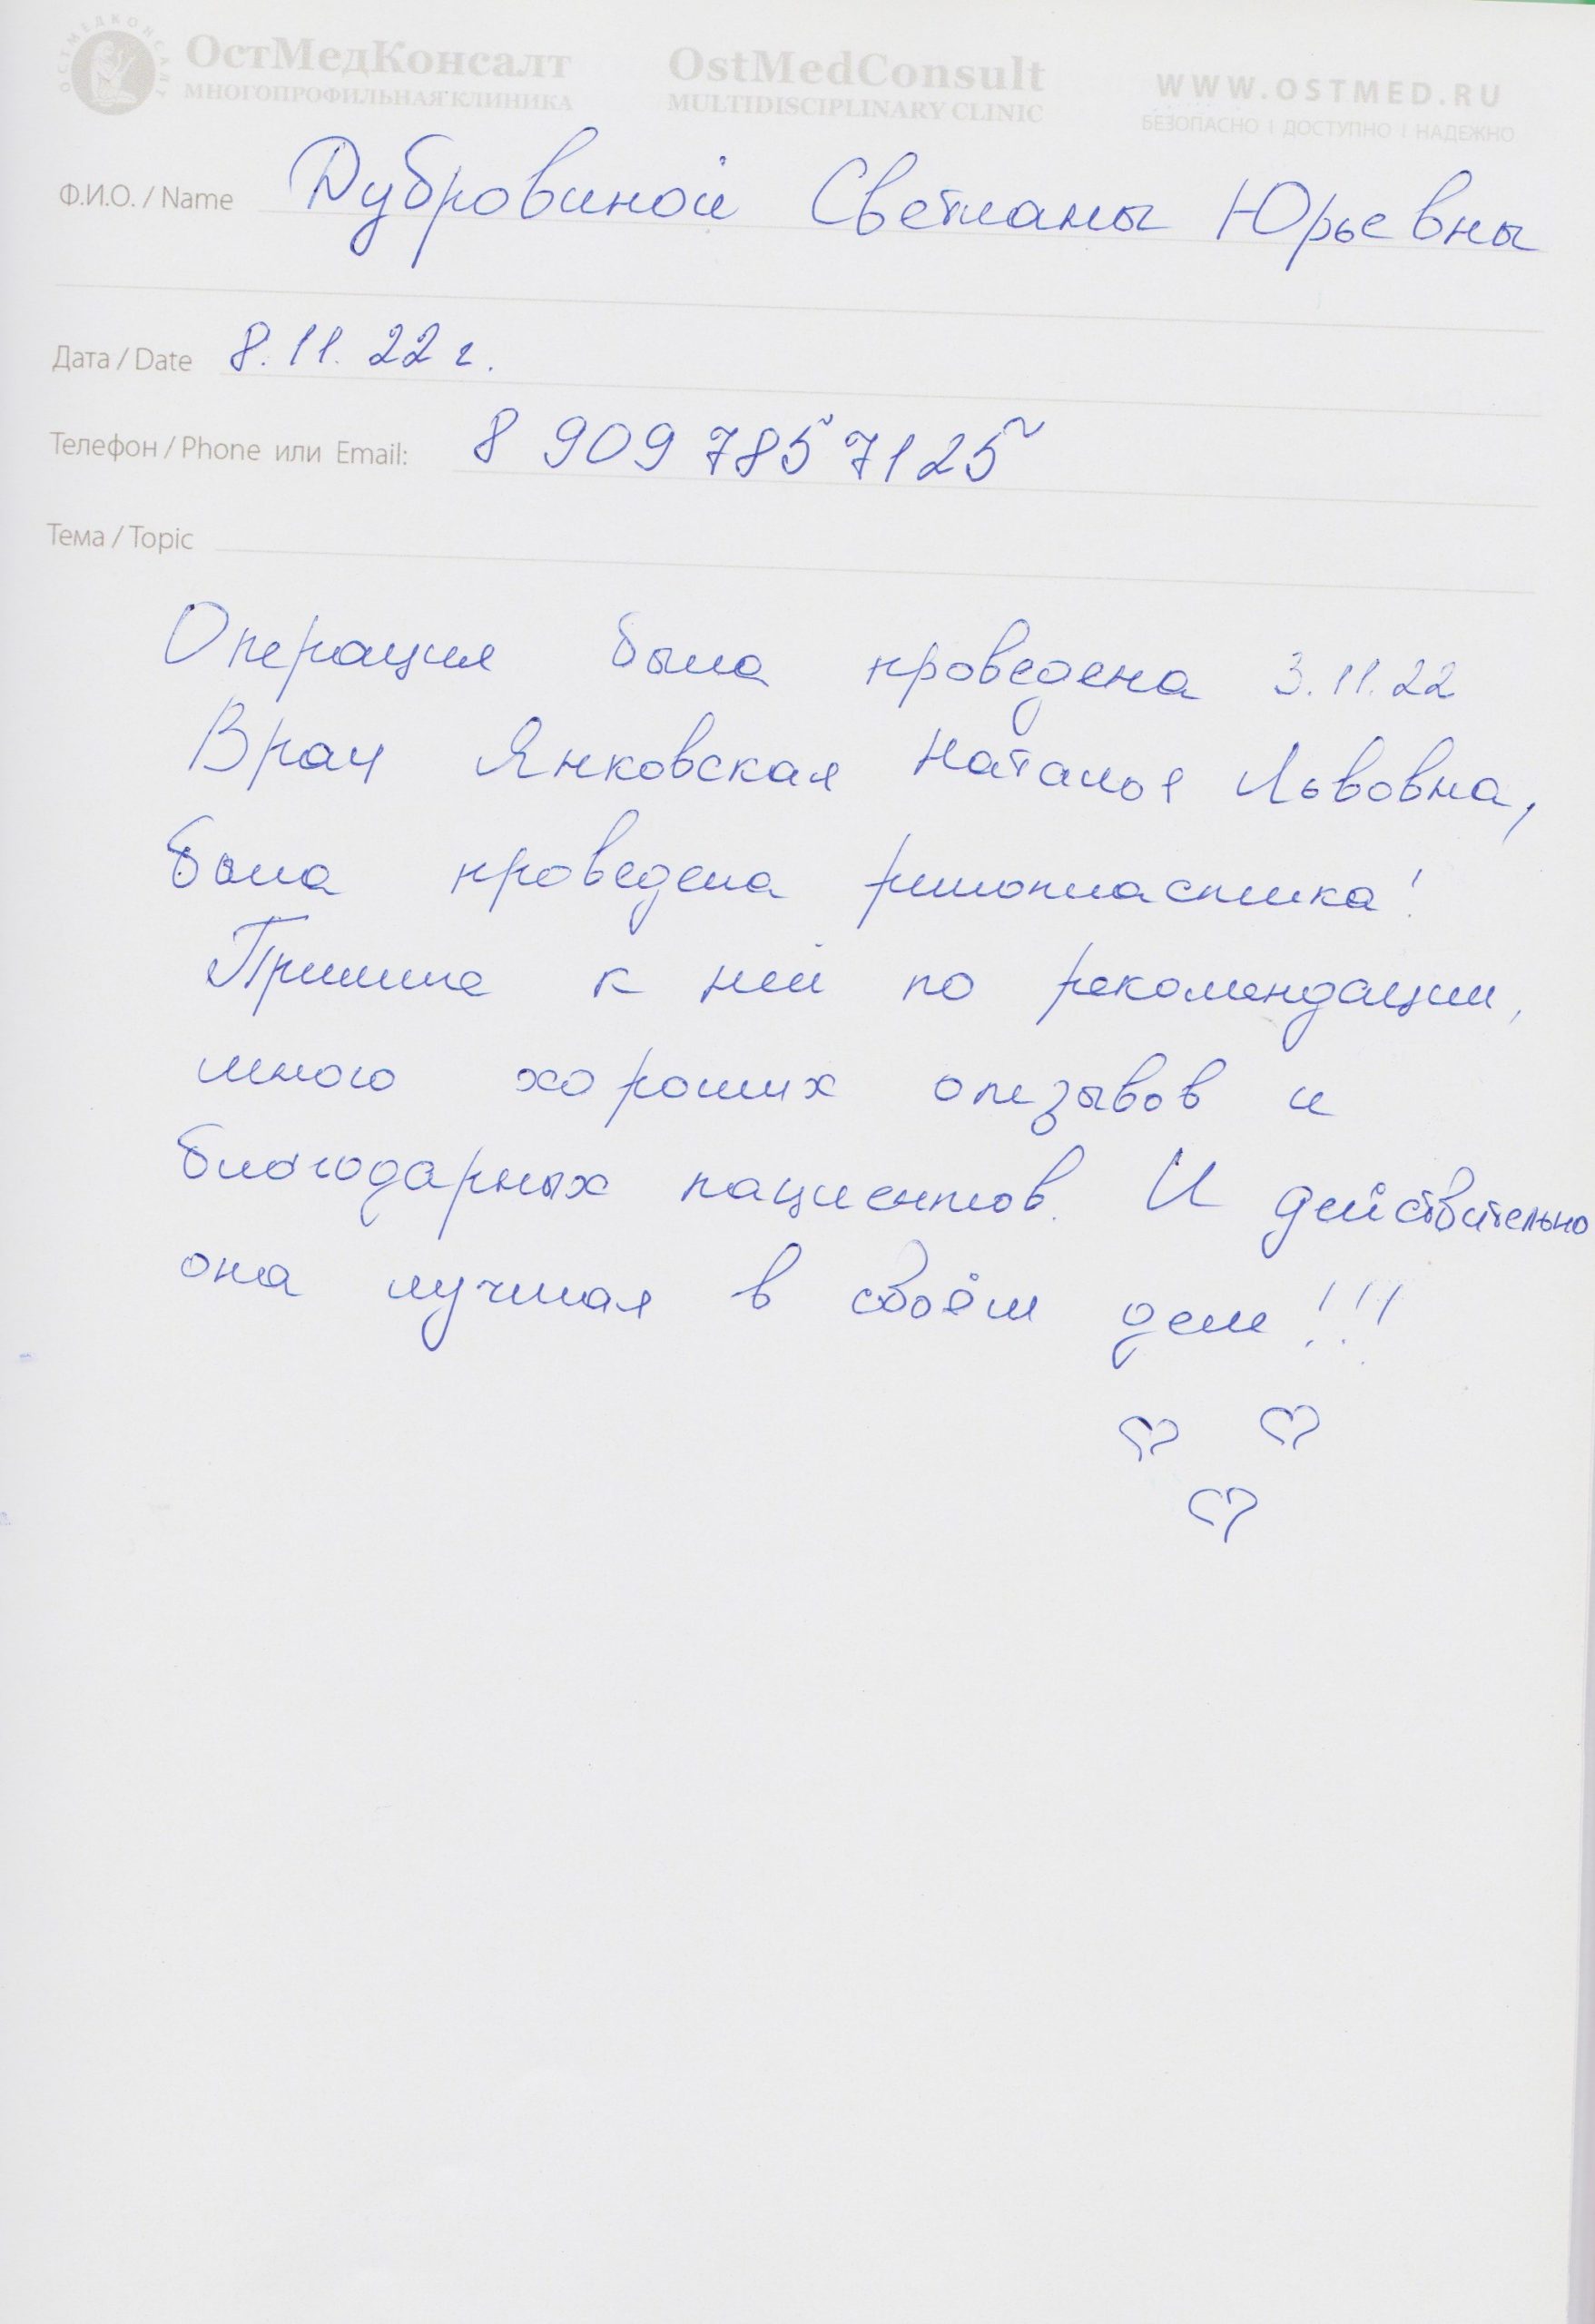 ОСТМЕДКОНСАЛТ
ОстМедКонсалт
МНОГОПРОФИЛЬНАЯ КЛИНИКА
OstMedConsult
MULTIDISCIPLINARY CLINIC
WWW.OSTMED.RU
БЕЗОПАСНО | ДОСТУПНО | НАДЕЖНО
Ф.И.О. / Name Дубровиной Светланы Юрьевны
Дата / Date 8.11.22 г.
Телефон / Phone или Email: 8 909 785 7125
Тема / Topic
Операция была проведена 3.11.22
Врач Янковская Наталья Львовна,
была проведена ринопластика!
Пришла к ней по рекомендации,
много хороших отзывов и
благодарных пациентов. И действительно
она лучшая в своём деле!!!